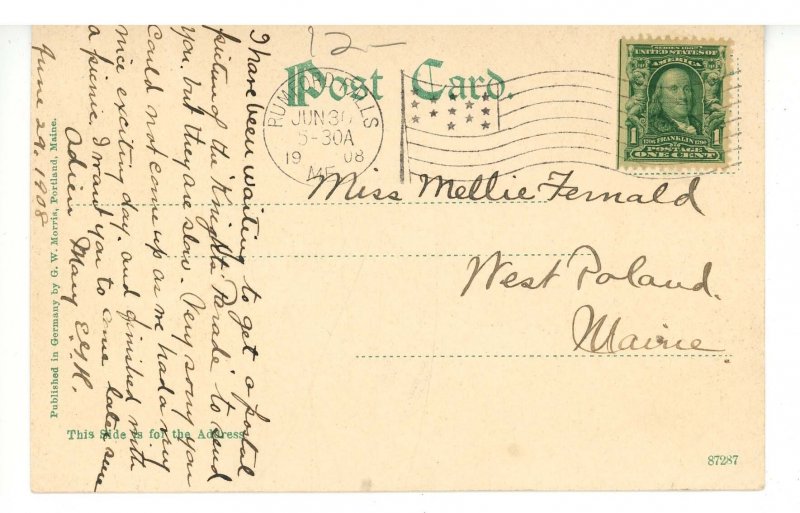 12-
Post Card.
RUMFORD FALLS
JUN 30
5-30A
19 08
ME.
SERIES 1902
UNITED STATES OF AMERICA
1 FRANKLIN 1
POSTAGE
ONE CENT
Miss Mellie Fernald
West Poland.
Maine
I have been waiting to get a postal
picture of the "Knights Parade" to send
you, but they are slow. Very sorry you
could not come up as we had a very
nice exciting day, and finished with
a picnic. I want you to come later sure
Adieu Mary E.G.K.
June 29, 1908
Published in Germany by G. W. Morris, Portland, Maine.
This Side is for the Address
87287